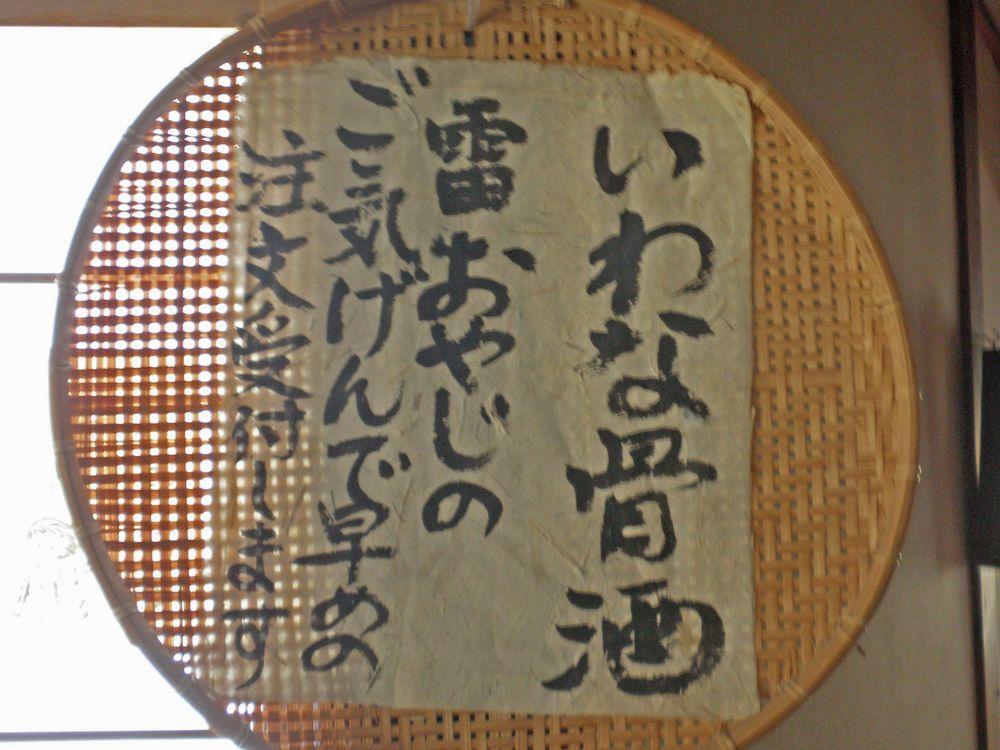 いわな骨酒
雷おやじの
ご気げんで早めの
注文受付します